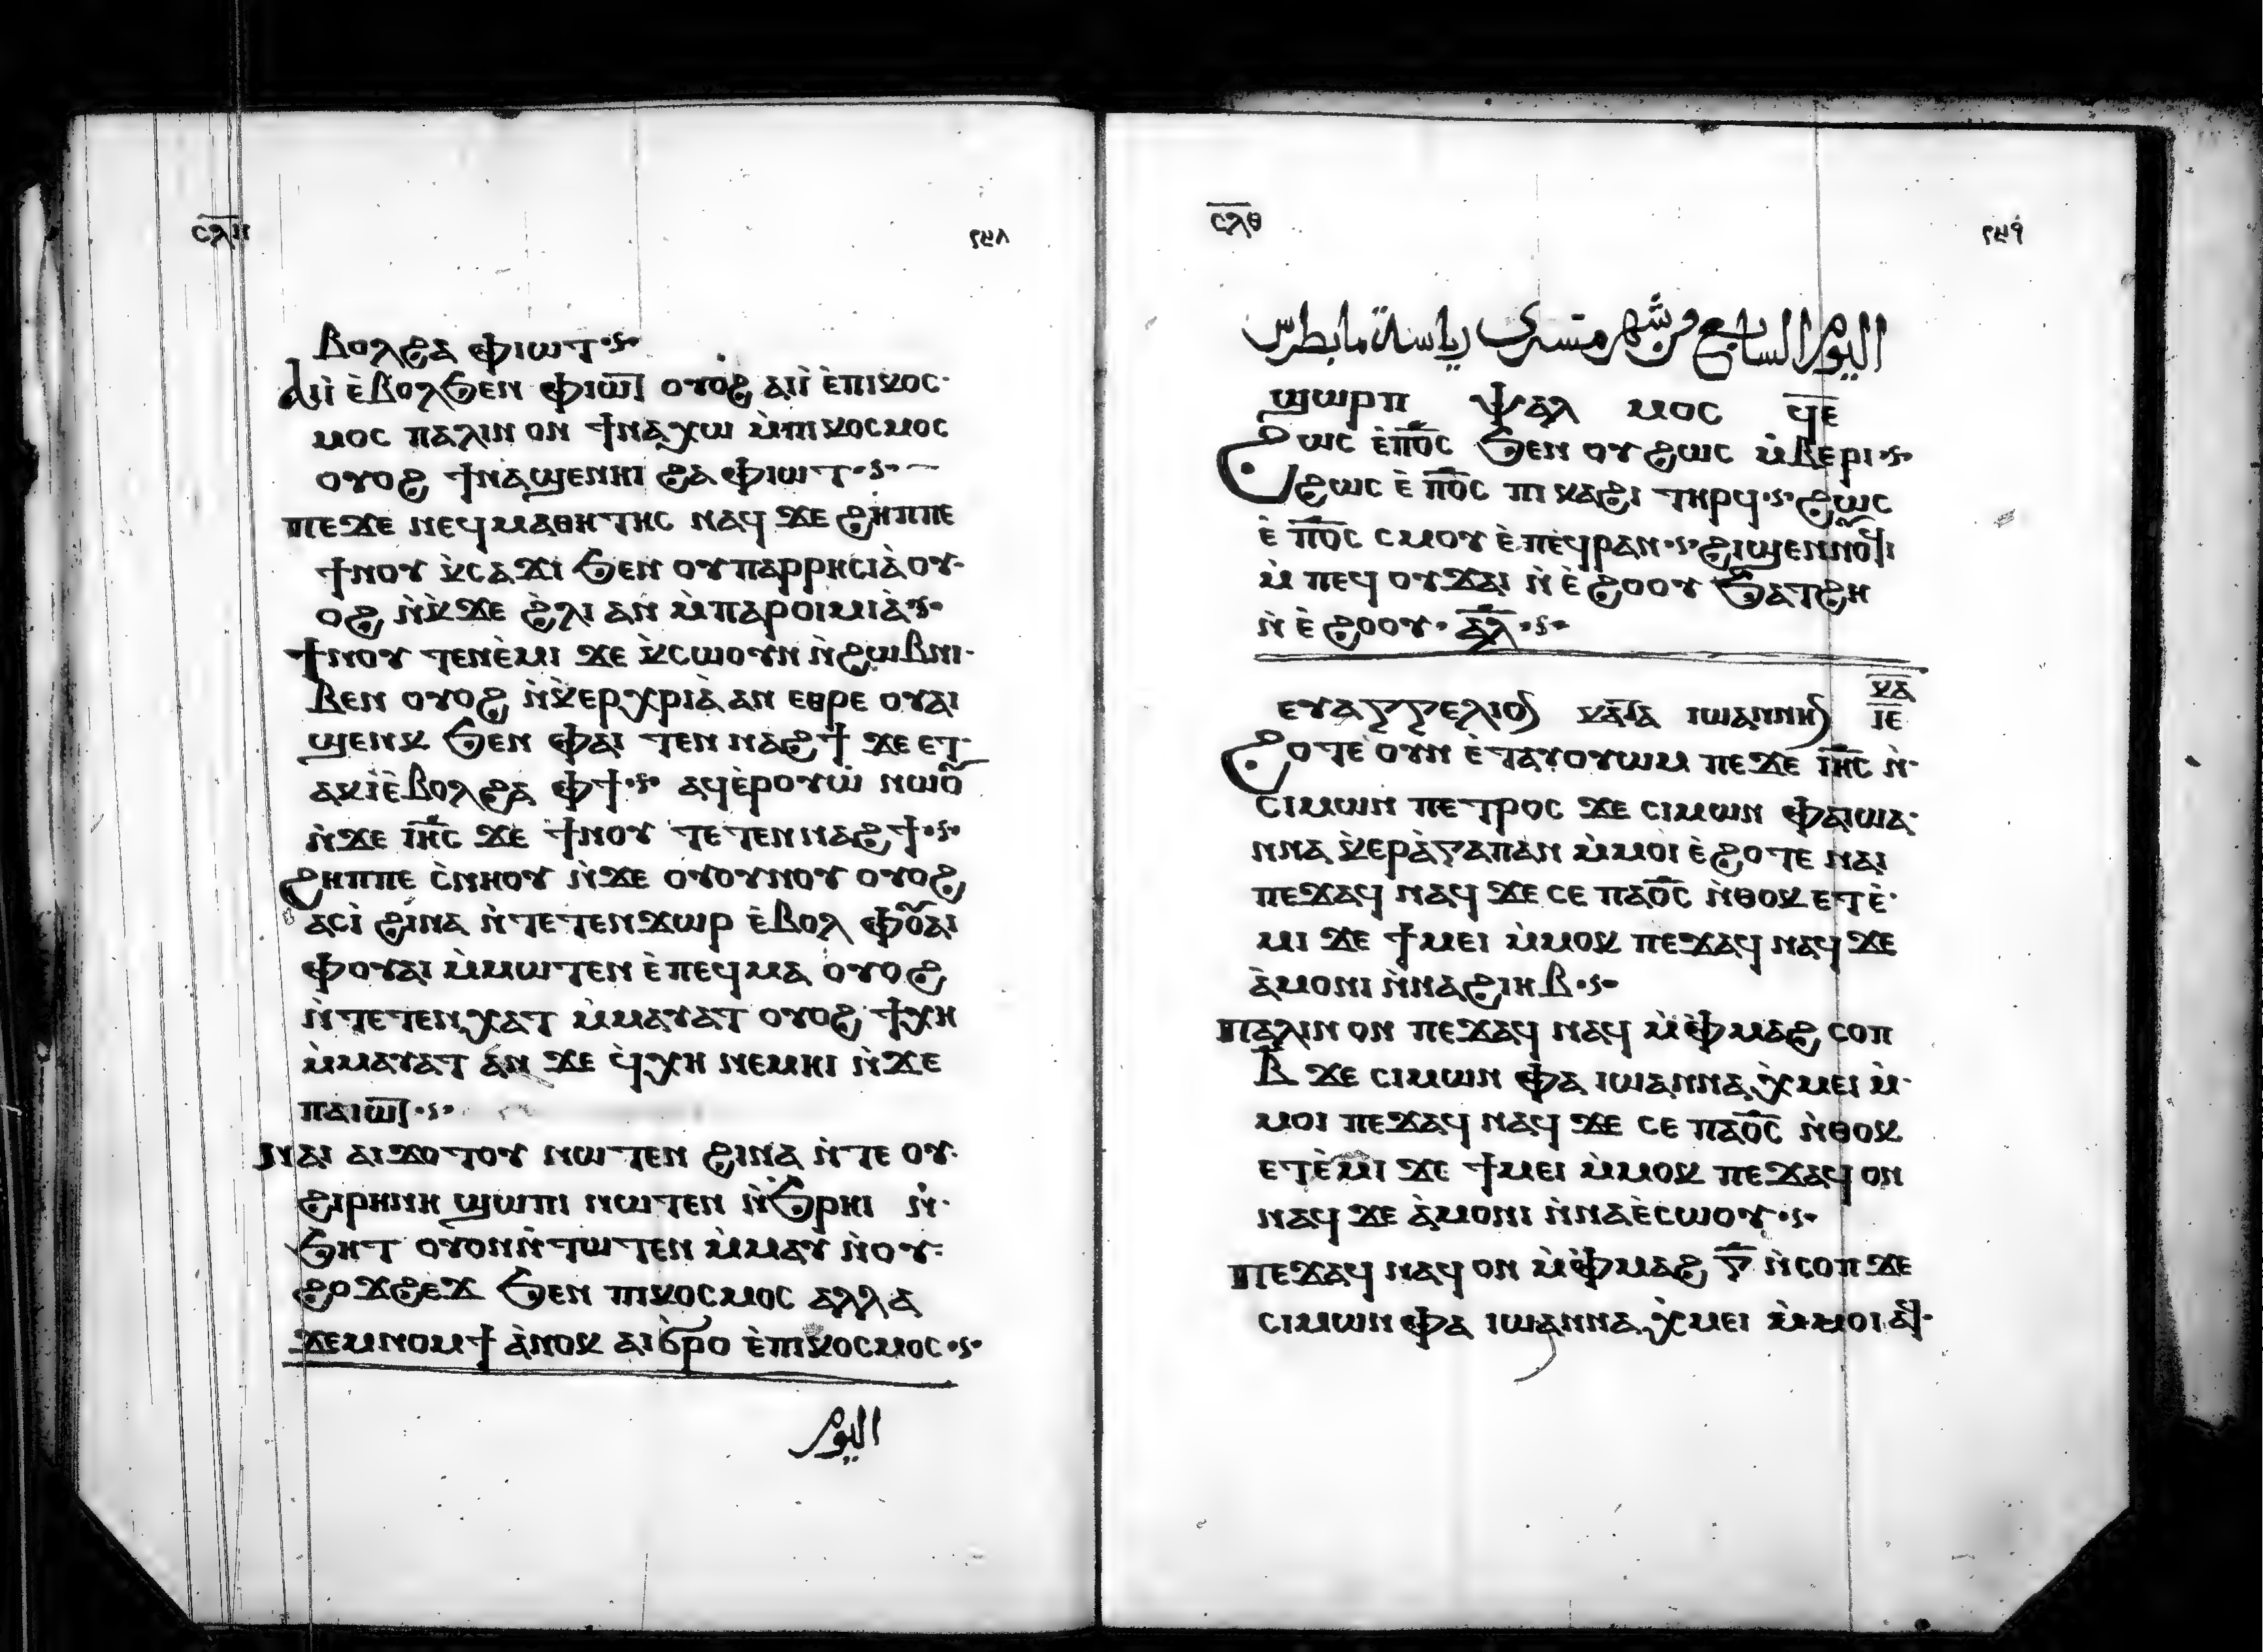 ⲥⲗⲏ
ⲃⲟⲗϩⲁ ⲫⲓⲱⲧ
ⲁⲓⲓ̀ ⲉ̀ⲃⲟⲗϧⲉⲛ ⲫⲓⲱⲧ ⲟⲩⲟϩ ⲁⲓⲓ̀ ⲉ̀ⲡⲓⲕⲟⲥ
ⲙⲟⲥ ⲡⲁⲗⲓⲛ ⲟⲛ ϯⲛⲁⲭⲱ ⲙ̀ⲡⲓⲕⲟⲥⲙⲟⲥ
ⲟⲩⲟϩ ϯⲛⲁϣⲉⲛⲏⲓ ϩⲁ ⲫⲓⲱⲧ
ⲡⲉϫⲉ ⲛⲉϥⲙⲁⲑⲏⲧⲏⲥ ⲛⲁϥ ϫⲉ ϩⲏⲡⲡⲉ
ϯⲛⲟⲩ ⲕ̀ⲥⲁϫⲓ ϧⲉⲛ ⲟⲩⲡⲁⲣⲣⲏⲥⲓⲁ̀ ⲟⲩ
ⲟϩ ⲛ̀ⲕ̀ϫⲉ ϩ̀ⲗⲓ ⲁⲛ ⲙ̀ⲡⲁⲣⲟⲓⲙⲓⲁ̀
ϯⲛⲟⲩ ⲧⲉⲛⲉ̀ⲙⲓ ϫⲉ ⲕ̀ⲥⲱⲟⲩⲛ ⲛ̀ϩⲱⲃⲛⲓ
ⲃⲉⲛ ⲟⲩⲟϩ ⲛ̀ⲕ̀ⲉⲣⲭⲣⲓⲁ̀ ⲁⲛ ⲉⲑⲣⲉ ⲟⲩⲁⲓ
ϣⲉⲛⲕ ϧⲉⲛ ⲫⲁⲓ ⲧⲉⲛ ⲛⲁϩϯ ϫⲉ ⲉⲧ
ⲁⲕⲓ̀ⲉ̀ⲃⲟⲗϩⲁ ⲫϯ ⲁϥⲉ̀ⲣⲟⲩⲱ̀ ⲛⲱⲟⲩ
ⲛ̀ϫⲉ ⲓⲏ̅ⲥ̅ ϫⲉ ϯⲛⲟⲩ ⲧⲉⲧⲉⲛⲛⲁϩϯ
ϩⲏⲡⲡⲉ ⲥ̀ⲛⲏⲟⲩ ⲛ̀ϫⲉ ⲟⲩⲟⲩⲛⲟⲩ ⲟⲩⲟϩ
ⲁⲥⲓ̀ ϩⲓⲛⲁ ⲛ̀ⲧⲉⲧⲉⲛϫⲱⲣ ⲉ̀ⲃⲟⲗ ⲫⲟⲩⲁⲓ
ⲫⲟⲩⲁⲓ ⲙ̀ⲙⲱⲧⲉⲛ ⲉ̀ⲡⲉϥⲙⲁ ⲟⲩⲟϩ
ⲛ̀ⲧⲉⲧⲉⲛⲭⲁⲧ ⲙ̀ⲙⲁⲩⲁⲧ ⲟⲩⲟϩ ϯⲭⲏ
ⲙ̀ⲙⲁⲩⲁⲧ ⲁⲛ ϫⲉ ϥ̀ⲭⲏ ⲛⲉⲙⲏⲓ ⲛ̀ϫⲉ
ⲡⲁⲓⲱⲧ
ⲛⲁⲓ ⲁⲓϫⲟⲧⲟⲩ ⲛⲱⲧⲉⲛ ϩⲓⲛⲁ ⲛ̀ⲧⲉ ⲟⲩ
ϩⲓⲣⲏⲛⲏ ϣⲱⲡⲓ ⲛⲱⲧⲉⲛ ⲛ̀ϧⲣⲏⲓ ⲛ̀
ϧⲏⲧ ⲟⲩⲟⲛⲛ̀ⲧⲱⲧⲉⲛ ⲙ̀ⲙⲁⲩ ⲛ̀ⲟⲩ
ϩⲟϫϩⲉϫ ϧⲉⲛ ⲡⲓⲕⲟⲥⲙⲟⲥ ⲁⲗⲗⲁ
ϫⲉⲙⲛⲟⲙϯ ⲁ̀ⲛⲟⲕ ⲁⲓϭⲣⲟ ⲉ̀ⲡⲓⲕⲟⲥⲙⲟⲥ
اليوم
ⲥⲗⲑ
اليوم السابع من شهر مسرى رياسة مابطرس
ϣⲱⲣⲡ ⲯⲁⲗⲙⲟⲥ ϥⲉ
ϩⲱⲥ ⲉ̀ⲡⲟ̅ⲥ̅ ϧⲉⲛ ⲟⲩϩⲱⲥ ⲙ̀ⲃⲉⲣⲓ
ϩⲱⲥ ⲉ̀ⲡⲟ̅ⲥ̅ ⲡⲓⲕⲁϩⲓ ⲧⲏⲣϥ ϩⲱⲥ
ⲉ̀ⲡⲟ̅ⲥ̅ ⲥⲙⲟⲩ ⲉ̀ⲡⲉϥⲣⲁⲛ ϩⲓϣⲉⲛⲛⲟⲩϥⲓ
ⲙ̀ⲡⲉϥⲟⲩϫⲁⲓ ⲛ̀ⲉ̀ϩⲟⲟⲩ ϧⲁⲧϩⲏ
ⲛ̀ⲉ̀ϩⲟⲟⲩ ⲁ̅ⲗ̅
ⲉⲩⲁⲅⲅⲉⲗⲓⲟⲛ ⲕⲁⲧⲁ ⲓⲱⲁⲛⲛⲏⲛ ⲕⲁ ⲓⲉ
ϩⲟⲧⲉ ⲟⲩⲛ ⲉ̀ⲧⲁⲩⲟⲩⲱⲙ ⲡⲉϫⲉ ⲓⲏ̅ⲥ̅ ⲛ̀
ⲥⲓⲙⲱⲛ ⲡⲉⲧⲣⲟⲥ ϫⲉ ⲥⲓⲙⲱⲛ ⲫⲁⲓⲱⲁ
ⲛⲛⲁ ⲕ̀ⲉⲣⲁ̀ⲅⲁⲡⲁⲛ ⲙ̀ⲙⲟⲓ ⲉ̀ϩⲟⲧⲉ ⲛⲁⲓ
ⲡⲉϫⲁϥ ⲛⲁϥ ϫⲉ ⲥⲉ ⲡⲁⲟ̅ⲥ̅ ⲛ̀ⲑⲟⲕ ⲉⲧⲉ̀
ⲙⲓ ϫⲉ ϯⲙⲉⲓ ⲙ̀ⲙⲟⲕ ⲡⲉϫⲁϥ ⲛⲁϥ ϫⲉ
ⲁ̀ⲙⲟⲛⲓ ⲛ̀ⲛⲁϩⲓⲏⲃ
ⲡⲁⲗⲓⲛ ⲟⲛ ⲡⲉϫⲁϥ ⲛⲁϥ ⲙ̀ⲫ̀ⲙⲁϩ ⲥⲟⲡ
ⲃ̅ ϫⲉ ⲥⲓⲙⲱⲛ ⲫⲁ ⲓⲱⲁⲛⲛⲁ ⲭ̀ⲙⲉⲓ ⲙ̀
ⲙⲟⲓ ⲡⲉϫⲁϥ ⲛⲁϥ ϫⲉ ⲥⲉ ⲡⲁⲟ̅ⲥ̅ ⲛ̀ⲑⲟⲕ
ⲉⲧⲉ̀ⲙⲓ ϫⲉ ϯⲙⲉⲓ ⲙ̀ⲙⲟⲕ ⲡⲉϫⲁϥ ⲟⲛ
ⲛⲁϥ ϫⲉ ⲁ̀ⲙⲟⲛⲓ ⲛ̀ⲛⲁⲉ̀ⲥⲱⲟⲩ
ⲡⲉϫⲁϥ ⲛⲁϥ ⲟⲛ ⲙ̀ⲫ̀ⲙⲁϩ ⲅ̅ ⲛ̀ⲥⲟⲡ ϫⲉ
ⲥⲓⲙⲱⲛ ⲫⲁ ⲓⲱⲁⲛⲛⲁ ⲭ̀ⲙⲉⲓ ⲙ̀ⲙⲟⲓ